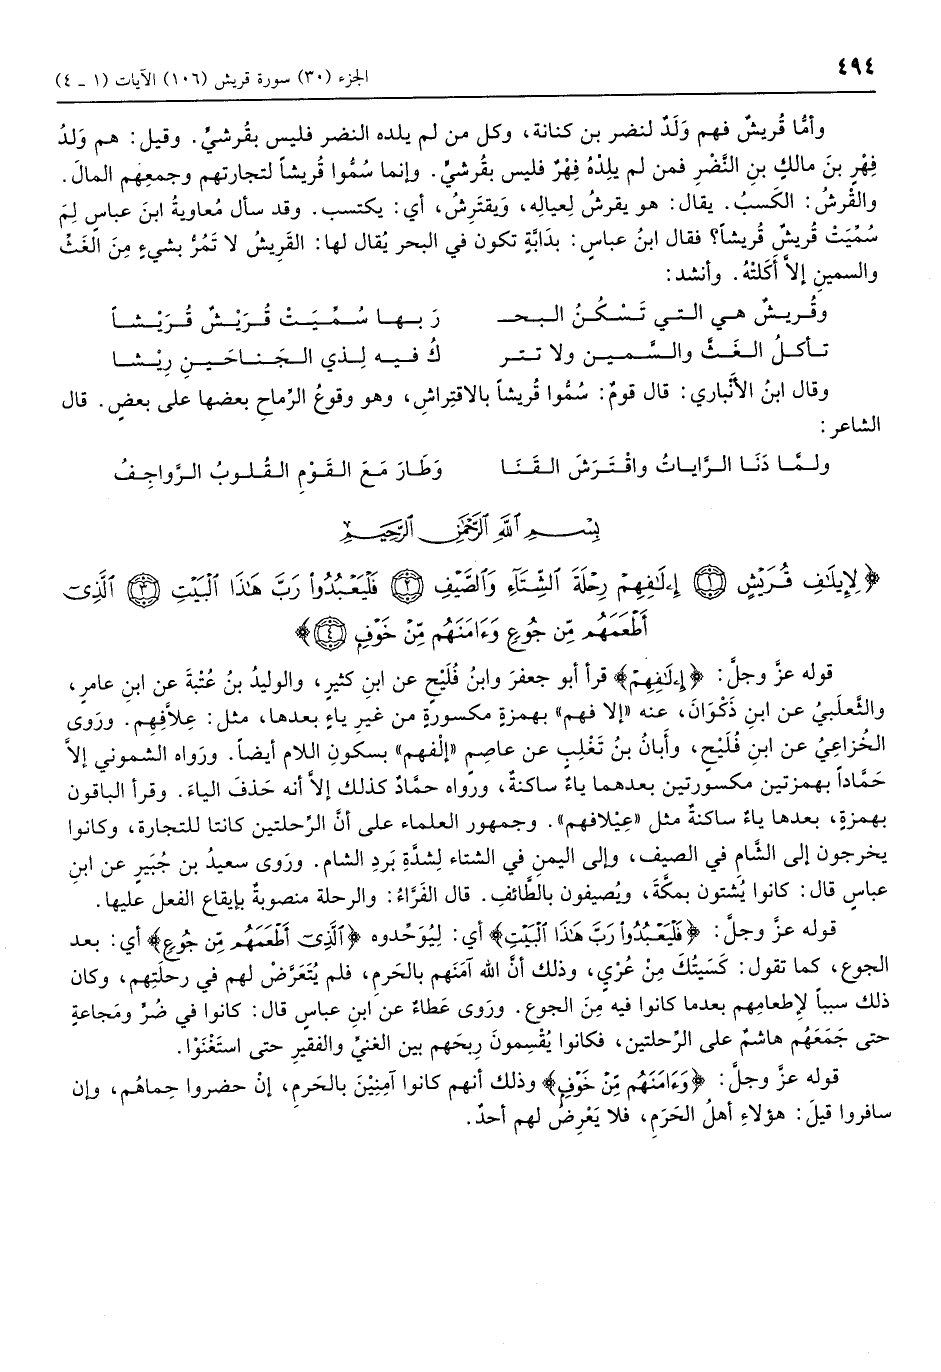 ٤٩٤
الجزء (٣٠) سورة قريش (١٠٦) الآيات (١ - ٤)
وأمَّا قُريشٌ فهم وَلَدٌ لنضر بن كنانة، وكل من لم يلده النضر فليس بقُرشيٍّ. وقيل: هم وَلدُ
فِهْر بنَ مالكِ بنِ النَّضْرِ فمن لم يلِدْهُ فِهْرٌ فليس بقُرشيٍّ. وإنما سُمُّوا قُريشاً لتجارتهم وجمعِهِم المالَ.
والقُرشُ: الكَسبُ. يقال: هو يقرشُ لعيالِه، وَيقتَرِشُ، أي: يكتسب. وقد سأل مُعاويةُ ابنَ عباسٍ لِمَ
سُمِّيَتْ قُريشٌ قُريشاً؟ فقال ابنُ عباسٍ: بدَابَّةٍ تكون في البحر يُقال لها: القَريشُ لا تَمُرُّ بشيءٍ مِنَ الغَثِّ
والسمينِ إلاَّ أَكَلتْهُ. وأنشد:
وقُـريـشٌ هـي الـتـي تَـسْـكُـنُ الـبـحـ رَ بـهـا سُـمِّـيَـتْ قُـرَيْـشٌ قُـرَيْـشـاً
تـأكـلُ الـغَـثَّ والسَّـمـيـن ولا تـتـر كُ فـيـه لِـذي الـجَـنـاحَـيـنِ رِيْـشـا
وقال ابنُ الأنْباري: قال قومٌ: سُمُّوا قُريشاً بالاقتِراشِ، وهو وقوعُ الرِّماحِ بعضها على بعضٍ. قال
الشاعر:
ولـمَّـا دَنَـا الـرَّايـاتُ واقْـتَـرَشَ الـقَـنَـا وَطَـارَ مَـعَ الـقَـوْمِ الـقُـلـوبُ الـرَّواجِـفُ
بِسْمِ ٱللَّهِ ٱلرَّحْمَٰنِ ٱلرَّحِيمِ
﴿لِإِيلَٰفِ قُرَيْشٍ ﴿١﴾ إِۦلَٰفِهِمْ رِحْلَةَ ٱلشِّتَآءِ وَٱلصَّيْفِ ﴿٢﴾ فَلْيَعْبُدُوا۟ رَبَّ هَٰذَا ٱلْبَيْتِ ﴿٣﴾ ٱلَّذِىٓ
أَطْعَمَهُم مِّن جُوعٍ وَءَامَنَهُم مِّنْ خَوْفٍۭ ﴿٤﴾﴾
قوله عزَّ وجلَّ: ﴿إِۦلَٰفِهِمْ﴾ قرأ أبو جعفرَ وابنُ فُلَيْحٍ عن ابنِ كثيرٍ، والوليدُ بنُ عُتْبَةَ عن ابنِ عامرٍ،
والثَّعلَبيُّ عن ابنِ ذَكْوَانَ، عنه «إلا فهم» بهمزةٍ مكسورةٍ من غيرِ ياءٍ بعدها، مثل: عِلاَفِهِم. ورَوى
الخُزاعِيُّ عن ابنِ فُلَيْحٍ، وأَبانُ بنُ تَغْلِبٍ عن عاصمٍ «إلْفهم» بسكونِ اللام أيضاً. ورَواه الشموني إلاَّ
حَمَّاداً بهمزتينِ مكسورتينِ بعدهما ياءٌ ساكنةٌ، ورَواه حمَّادٌ كذلك إلاَّ أنه حَذفَ الياءَ. وقرأ الباقون
بهمزةٍ، بعدها ياءٌ ساكنةٌ مثل «عِيْلافهم». وجمهور العلماء على أنَّ الرِّحلتين كانتا للتجارة، وكانوا
يخرجون إلى الشَّامِ في الصيف، وإلى اليمنِ في الشتاء لِشدَّةِ بَردِ الشام. ورَوى سعيدُ بن جُبَيرٍ عن ابنِ
عباسٍ قال: كانوا يُشتون بمكَّةَ، ويُصيفون بالطَّائفِ. قال الفَرَّاءُ: والرحلة منصوبةٌ بإيقاعِ الفعل عليها.
قوله عزَّ وجلَّ: ﴿فَلْيَعْبُدُوا۟ رَبَّ هَٰذَا ٱلْبَيْتِ﴾ أي: لِيُوَحِّدوه ﴿ٱلَّذِىٓ أَطْعَمَهُم مِّن جُوعٍ﴾ أي: بعد
الجوع، كما تقول: كَسَيتُكَ مِنْ عُرْيٍ، وذلك أنَّ الله آمَنَهم بالحَرمِ، فلم يُتَعَرَّضْ لهم في رحلتِهِم، وكان
ذلك سبباً لإطعامِهِم بعدما كانوا فيه مِنَ الجوع. ورَوى عَطاءُ عن ابنِ عباسٍ قال: كانوا في ضُرٍّ ومَجاعةٍ
حتى جَمَعَهُم هاشمٌ على الرِّحلتين، فكانوا يُقْسِمونَ رِبحَهم بين الغنيِّ والفقيرِ حتى استَغْنَوْا.
قوله عزَّ وجلَّ: ﴿وَءَامَنَهُم مِّنْ خَوْفٍۭ﴾ وذلك أنهم كانوا آمِنِيْنَ بالحَرمِ، إنْ حضروا حِماهُم، وإن
سافروا قيلَ: هؤلاءِ أهلُ الحَرَمِ، فلا يَعْرِضُ لهم أحدٌ.